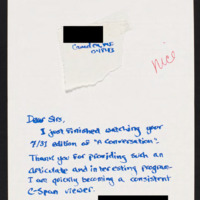 nice
Dear Sirs,
I just finished watching your
7/31 edition of "A Conversation".
Thank you for providing such an
articulate and interesting program.
I am quickly becoming a consistent
C-Span viewer.